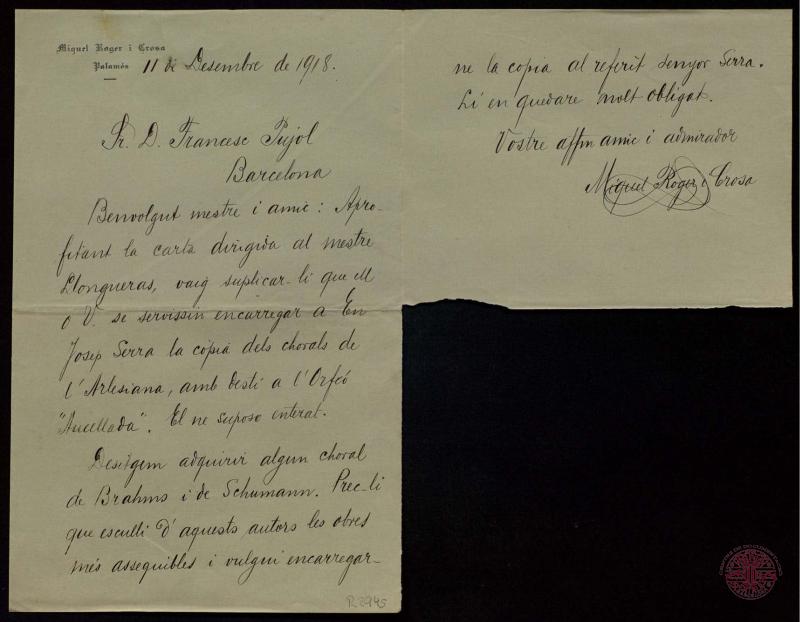 Miguel Roger i Crosa
Palamós
11 de Desembre de 1918.
Sr. D. Francesc Pujol
Barcelona
Benvolgut mestre i amic: Apro-
fitant la carta dirigida al mestre
Llongueras, vaig suplicar-li que ell
o V. se servissin encarregar a En
Josep Serra la còpia dels chorals de
l'Arlesiana, amb destí a l'Orfeó
"Aucellada". El ne suposo enterat.
Desitgem adquirir algun choral
de Brahms i de Schumann. Prec-li
que esculli d'aquests autors les obres
més assequibles i vulgui encarregar-
ne la copia al referit senyor Serra.
Li en quedare molt obligat.
Vostre affm amic i admirador
Miguel Roger i Crosa